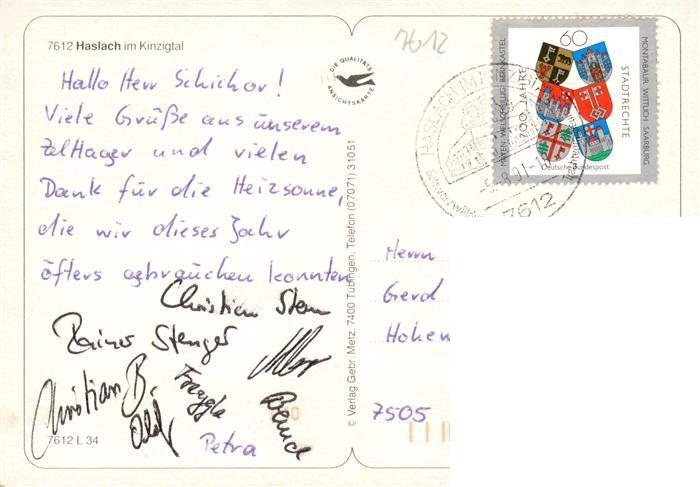 7612 Haslach im Kinzigtal
7612
DIE QUALITÄTS
ANSICHTSKARTE
Hallo Herr Schichor!
Viele Grüße aus unserem
Zeltlager und vielen
Dank für die Heizsonne,
die wir dieses Jahr
öfters gebrauchen konnten
Christian Stern
Rainer Stenger
Christian B.
Olaf
Petra
Bernd
7612 L 34
© Verlag Gebr. Metz, 7400 Tübingen, Telefon (07071) 31051
60
700 JAHRE
STADTRECHTE
MONTABAUR WITTLICH SAARBURG
WELSCHBILLIG BERNKASTEL
Deutsche Bundespost
HASLACH IM KINZIGTAL
Schwarzwald
7612
Herrn
Gerd
Hohen
7505